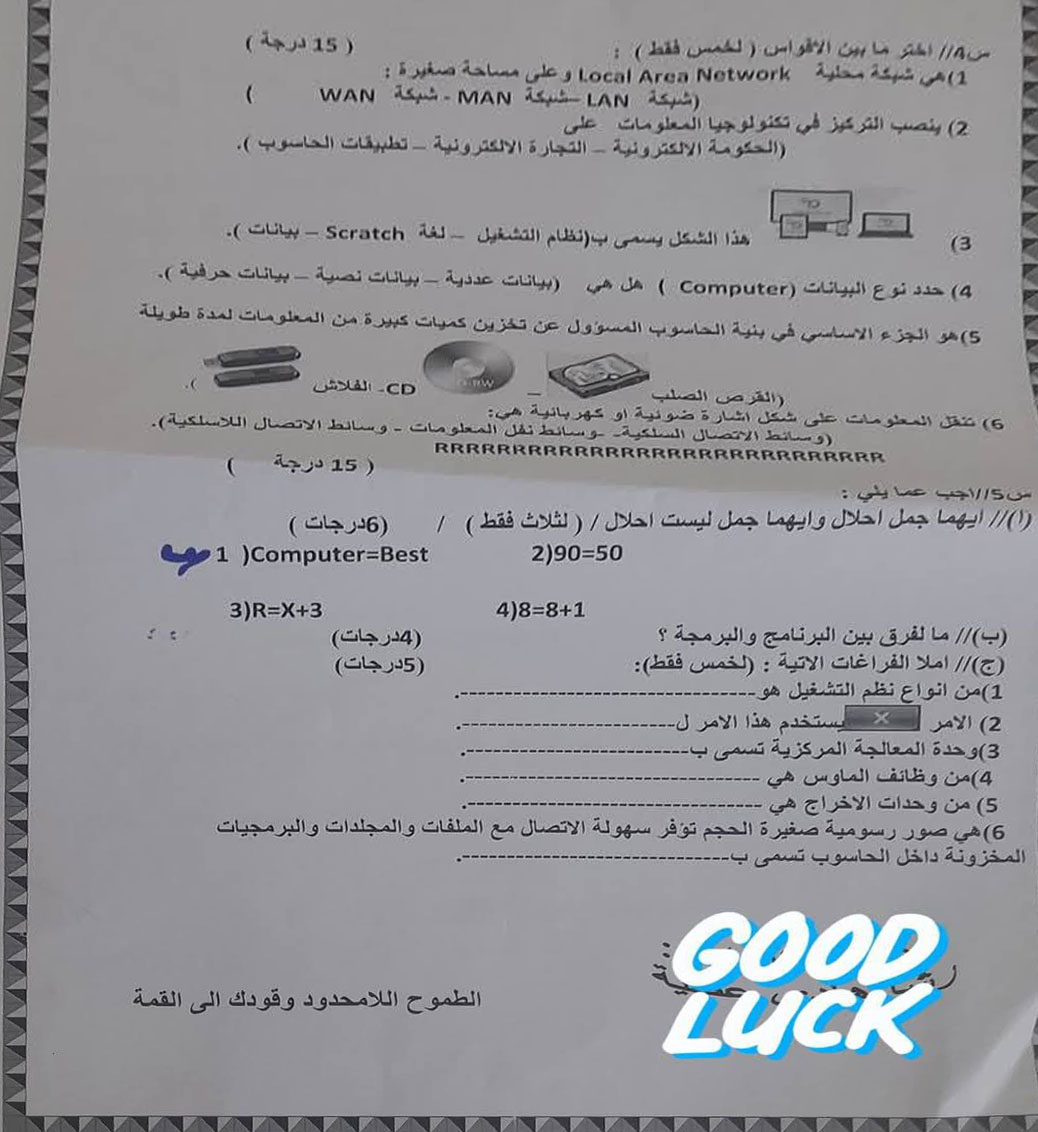 س4// اختر ما بين الاقواس ( لخمس فقط ) : ( 15 درجة )
1)هي شبكة محلية Local Area Network وعلى مساحة صغيرة :
(شبكة LAN –شبكة MAN - شبكة WAN )
2) ينصب التركيز في تكنولوجيا المعلومات على
(الحكومة الالكترونية – التجارة الالكترونية – تطبيقات الحاسوب ).
3) هذا الشكل يسمى ب(نظام التشغيل – لغة Scratch – بيانات ).
4) حدد نوع البيانات (Computer ) هل هي (بيانات عددية – بيانات نصية – بيانات حرفية ).
5)هو الجزء الاساسي في بنية الحاسوب المسؤول عن تخزين كميات كبيرة من المعلومات لمدة طويلة
(القرص الصلب – CD- الفلاش ).
6) تنقل المعلومات على شكل اشارة ضوئية او كهربائية هي:
(وسائط الاتصال السلكية- -وسائط نقل المعلومات - وسائط الاتصال اللاسلكية).
RRRRRRRRRRRRRRRRRRRRRRRRRRRRRR
س5//اجب عما يلي : ( 15 درجة )
(ا)// ايهما جمل احلال وايهما جمل ليست احلال / ( لثلاث فقط ) / (6درجات )
1 )Computer=Best 2)90=50
3)R=X+3 4)8=8+1
(ب)// ما لفرق بين البرنامج والبرمجة ؟ (4درجات)
(ج)// املا الفراغات الاتية : (لخمس فقط): (5درجات)
1)من انواع نظم التشغيل هو----------------------------------.
2) الامر يستخدم هذا الامر ل-------------------------.
3)وحدة المعالجة المركزية تسمى ب--------------------------.
4)من وظائف الماوس هي ----------------------------------.
5) من وحدات الاخراج هي ----------------------------------.
6)هي صور رسومية صغيرة الحجم توفر سهولة الاتصال مع الملفات والمجلدات والبرمجيات
المخزونة داخل الحاسوب تسمى ب-------------------------------.
GOOD
LUCK
الطموح اللامحدود وقودك الى القمة